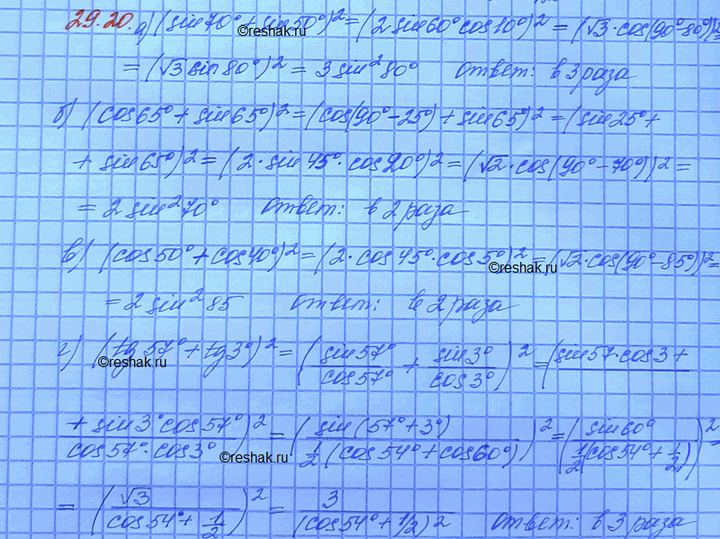 29.20. а) (sin70°+sin50°)²=(2sin60°cos10°)²=(√3·cos(90°-80°))²=
=(√3sin80°)²=3sin²80° ответ: в 3 раза
б) (cos65°+sin65°)²=(cos(90°-25°)+sin65°)²=(sin25°+
+sin65°)²=(2·sin45°·cos20°)²=(√2·cos(90°-70°))²=
=2sin²70° ответ: в 2 раза
в) (cos50°+cos40°)²=(2·cos45°·cos5°)²=(√2·cos(90°-85°))²=
=2sin²85 ответ: в 2 раза
г) (tg57°+tg3°)²=(sin57°/cos57°+sin3°/cos3°)²=(sin57·cos3+
+sin3°cos57°/cos57°·cos3°)²=(sin(57°+3°)/½(cos54°+cos60°))²=(sin60°/½(cos54°+½))²=
=(√3/cos54°+½)²=3/(cos54°+1/2)² ответ: в 3 раза
©reshak.ru
©reshak.ru
©reshak.ru
©reshak.ru